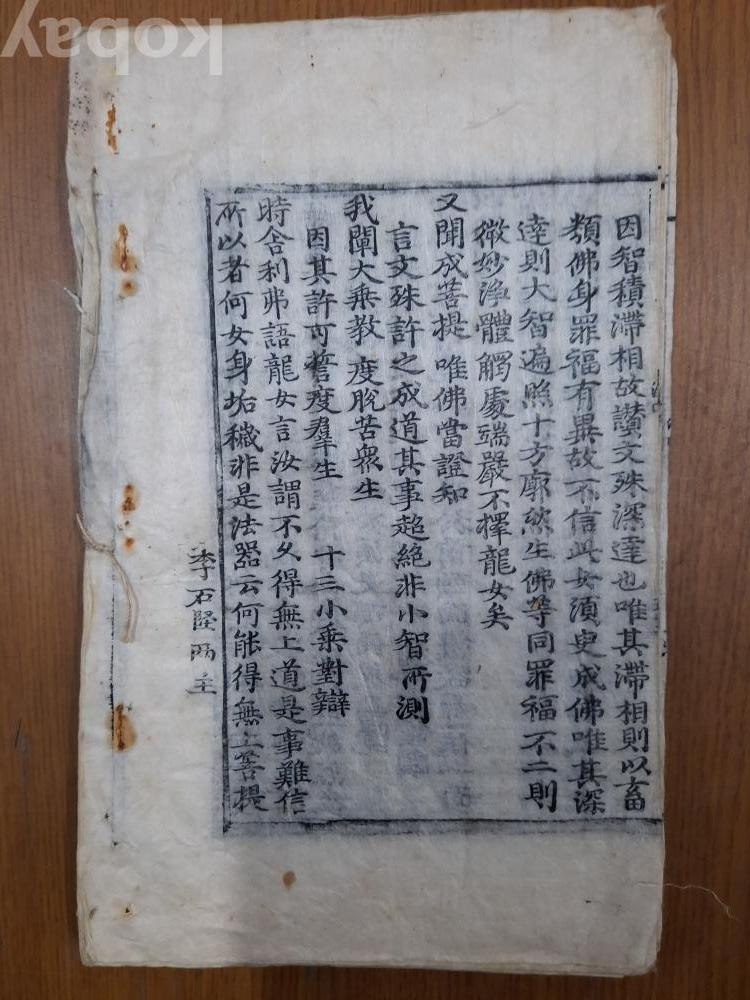 因智積滯相故讃文殊深達也唯其滯相則以畜
類佛身罪福有異故不信此女須臾成佛唯其深
達則大智遍照十方廓然生佛等同罪福不二則
微妙淨體觸處端嚴不擇龍女矣
又聞成菩提 唯佛當證知
言文殊許之成道其事超絶非小智所測
我闡大乘教 度脫苦衆生
因其許可誓度羣生 十三小乘對辯
時舍利弗語龍女言汝謂不久得無上道是事難信
所以者何女身垢穢非是法器云何能得無上菩提
李石陞两主
kobay